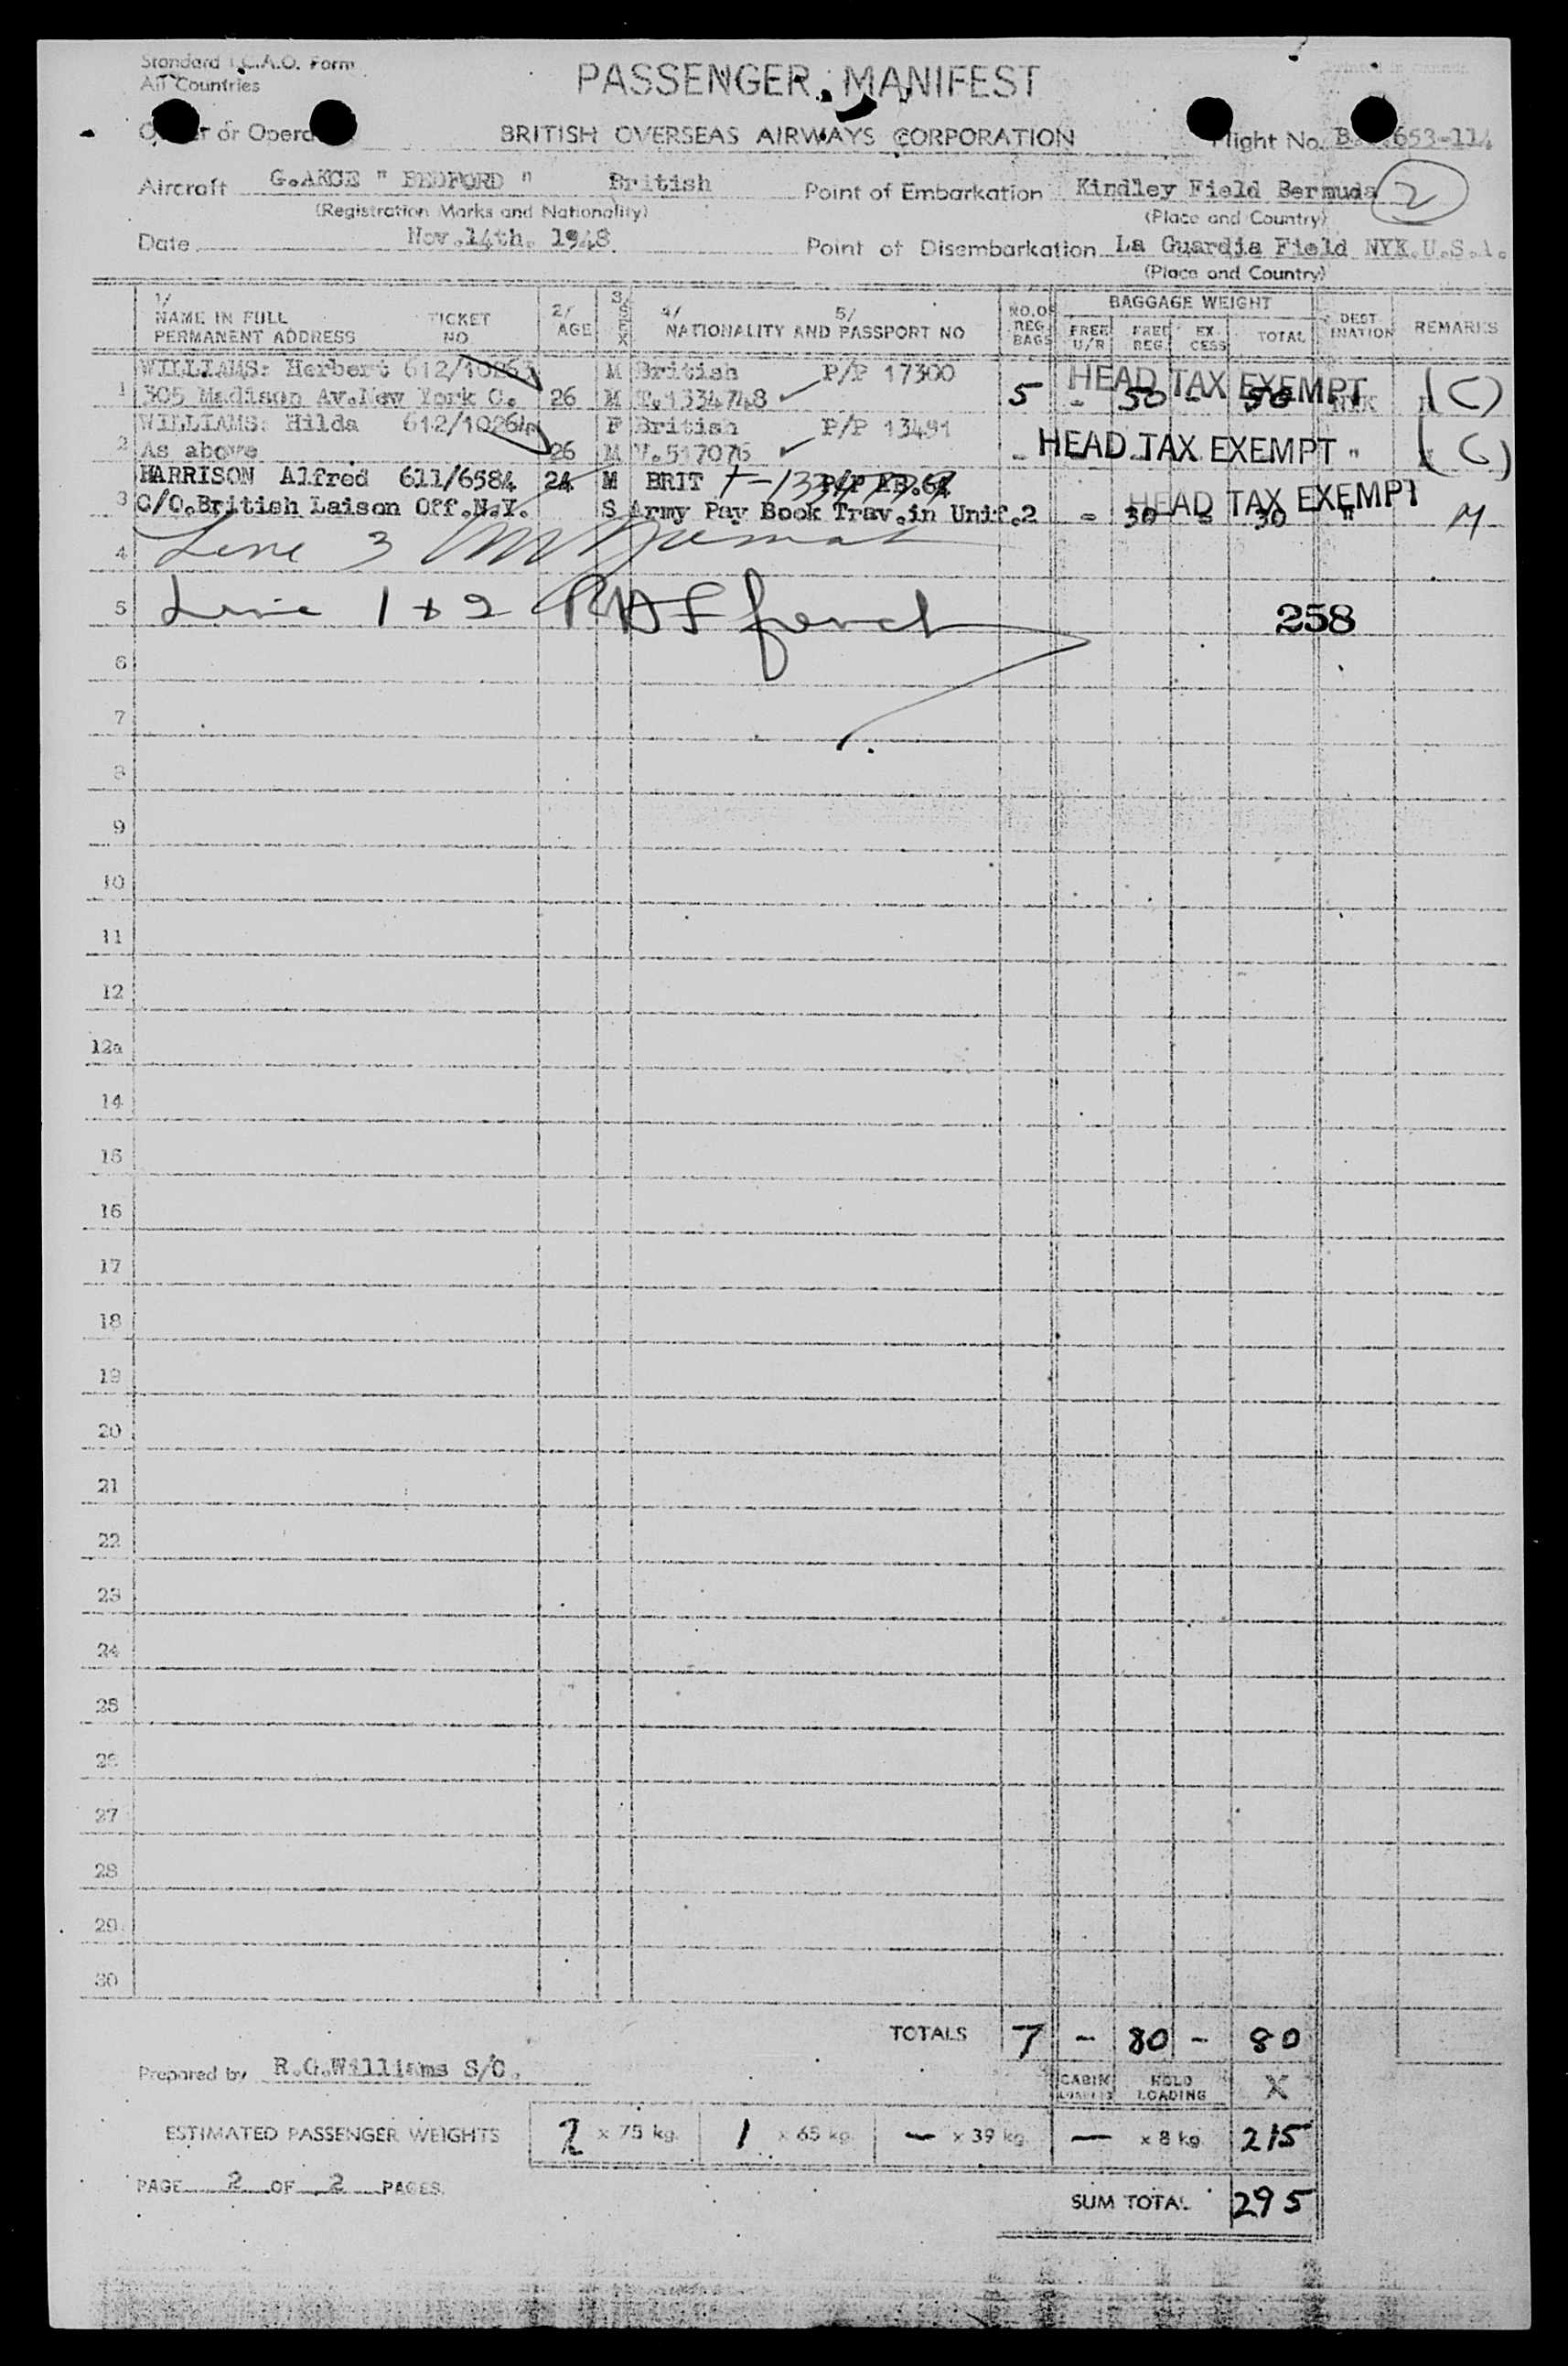 Standard I.C.A.O. Form
All Countries
PASSENGER MANIFEST
or Opera
BRITISH OVERSEAS AIRWAYS CORPORATION
Flight No. B 653-114
Aircraft G.AKCE " BEDFORD " British
Point of Embarkation Kindley Field Bermuda 2
(Registration Marks and Nationality)
(Place and Country)
Date Nov.14th. 1948.
Point of Disembarkation La Guardia Field NYK.U.S.A.
(Place and Country)
1/ NAME IN FULL PERMANENT ADDRESS TICKET NO. 2/ AGE 3/ SEX 4/ 5/ NATIONALITY AND PASSPORT NO NO.OF REG. BAGS BAGGAGE WEIGHT FREE U/R FREE REG. EX- CESS TOTAL DEST INATION REMARKS
WILLIAMS: Herbert 612/10263 M British P/P 17300 HEAD TAX EXEMPT
1 305 Madison Av.New York C. 26 M T.1334748 5 - 50 - 50 NYK (C)
WILLIAMS: Hilda 612/10264 F British P/P 13491
2 As above 26 M V.517076 - HEAD TAX EXEMPT " (C)
HARRISON Alfred 611/6584 24 M BRIT P/P AB.64
3 C/O.British Laison Off.N.Y. S Army Pay Book Trav.in Unif.2 - 30 - 30 " M
HEAD TAX EXEMPT
4 Line 3
5 Line 1 + 2
258
6
7
8
9
10
11
12
12a
14
15
16
17
18
19
20
21
22
23
24
25
26
27
28
29
30
TOTALS 7 - 80 - 80
Prepared by R.G.Williams S/C.
CABIN HOLD LOADING X
ESTIMATED PASSENGER WEIGHTS 2 x 75 kg. 1 x 65 kg. — x 39 kg. — x 8 kg. 215
PAGE 2 OF 2 PAGES.
SUM TOTAL 295